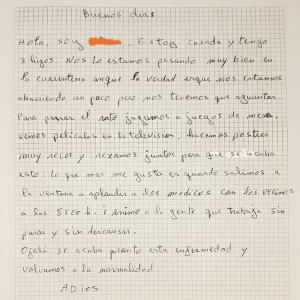 Buenos dias
Hola, soy , Estoy casada y tengo
3 higos. Nos lo estamos pasando muy bien en
la cuarentena anque la verdad es que nos estamos
aburriendo un poco pero nos tenemos que aguantar.
Para pasar el rato jugamos a juegos de mesa,
vemos peliculas en la television, hacemos postres
muy ricos y rezamos juntos para que se acaba
esto. Lo que mas me gusta es quando salimos a
la ventana a aplaudir a los medicos con los vecinos
a las 8:00 h. Y animo a la gente que trabaja sin
parar y sin descansar.
Ojalá se acaba pronto esta enfermedad y
volvamos a la normalidad.
ADIOS